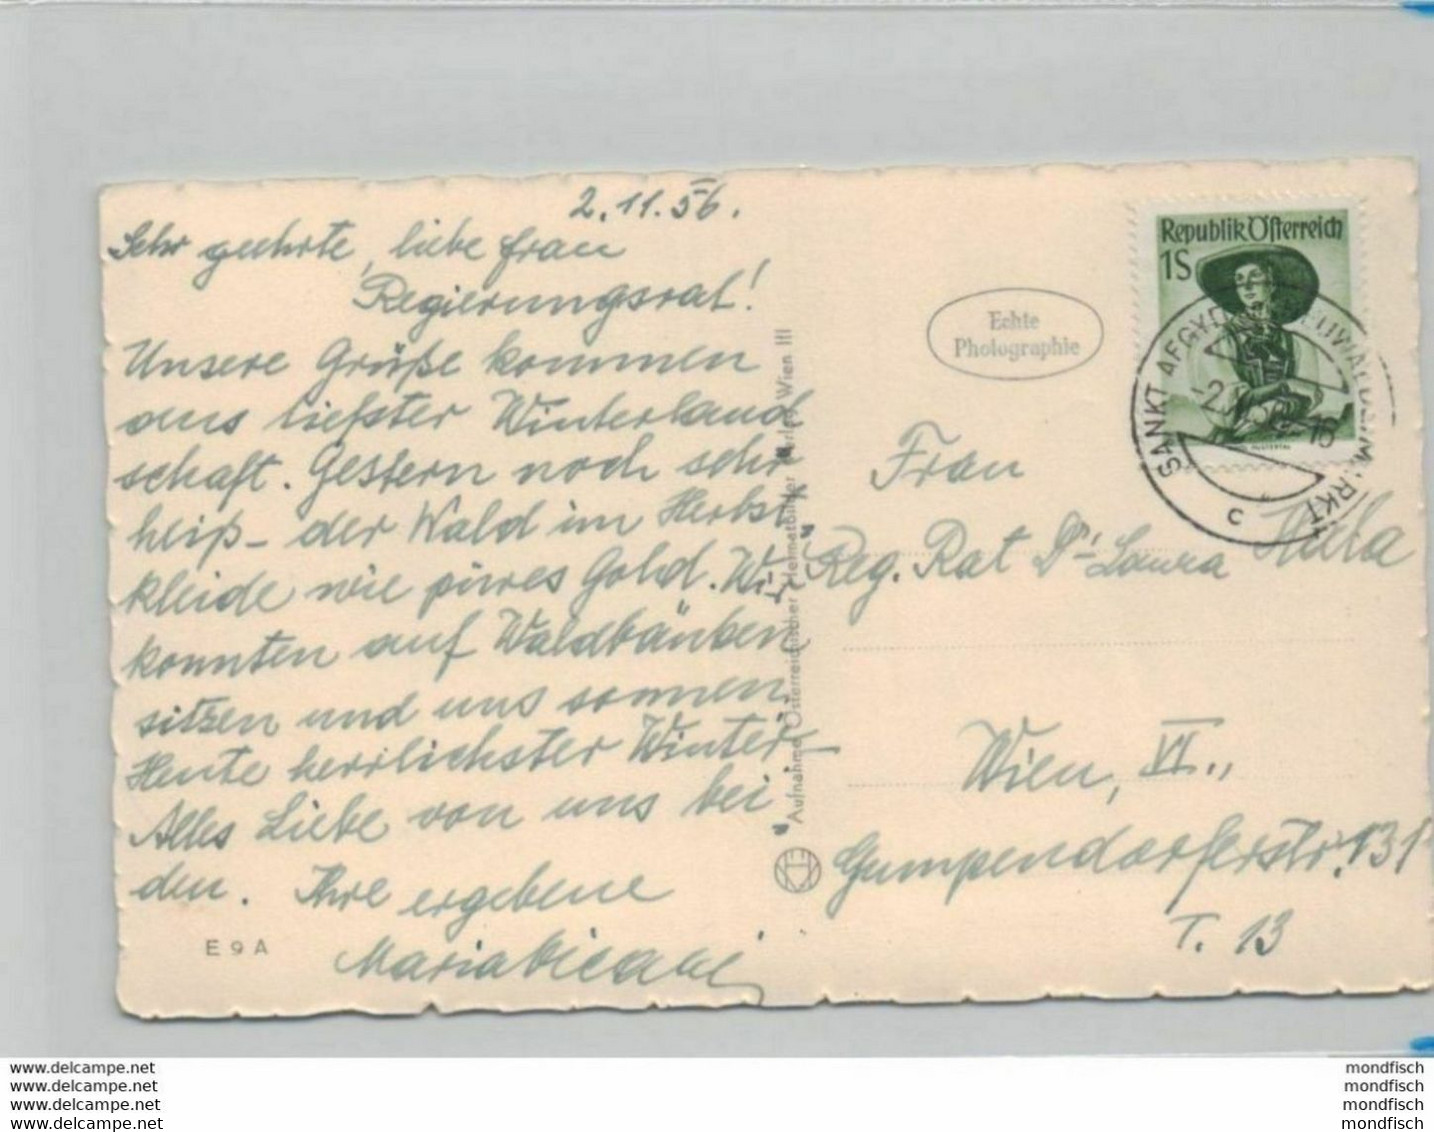 2.11.56.
Sehr geehrte, liebe Frau
Regierungsrat!
Unsere Grüße kommen
aus tiefster Winterland
schaft. Gestern noch sehr
heiß - der Wald im Herbst
kleide wie pures Gold. Wir
konnten auf Waldbänken
sitzen und uns sonnen.
Heute herrlichster Winter-
Alles Liebe von uns bei
den. Ihre ergebene
Maria
E 9 A
Aufnahme Österreichischer Heimatbilder Verlag Wien III
Echte
Photographie
Republik Österreich
1S
SANKT AEGYD AM NEUWALDE MARKT
C
Frau
Reg. Rat Dr. Laura
Wien, VI.,
Gumpendorferstr. 131
T. 13
www.delcampe.net
www.delcampe.net
www.delcampe.net
www.delcampe.net
mondfisch
mondfisch
mondfisch
mondfisch